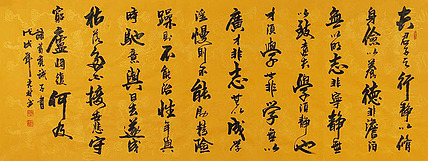 夫君子之行静以修
身儉以養德非澹泊
無以明志非寧静無
以致遠夫學須静也
才須學也非學無以
廣才非志無以成學
淫慢則不能勵精險
躁則不能治性年與
時馳意與日去遂成
枯落多不接世悲守
窮廬將復何及
諸葛亮誡子書
戊戌年